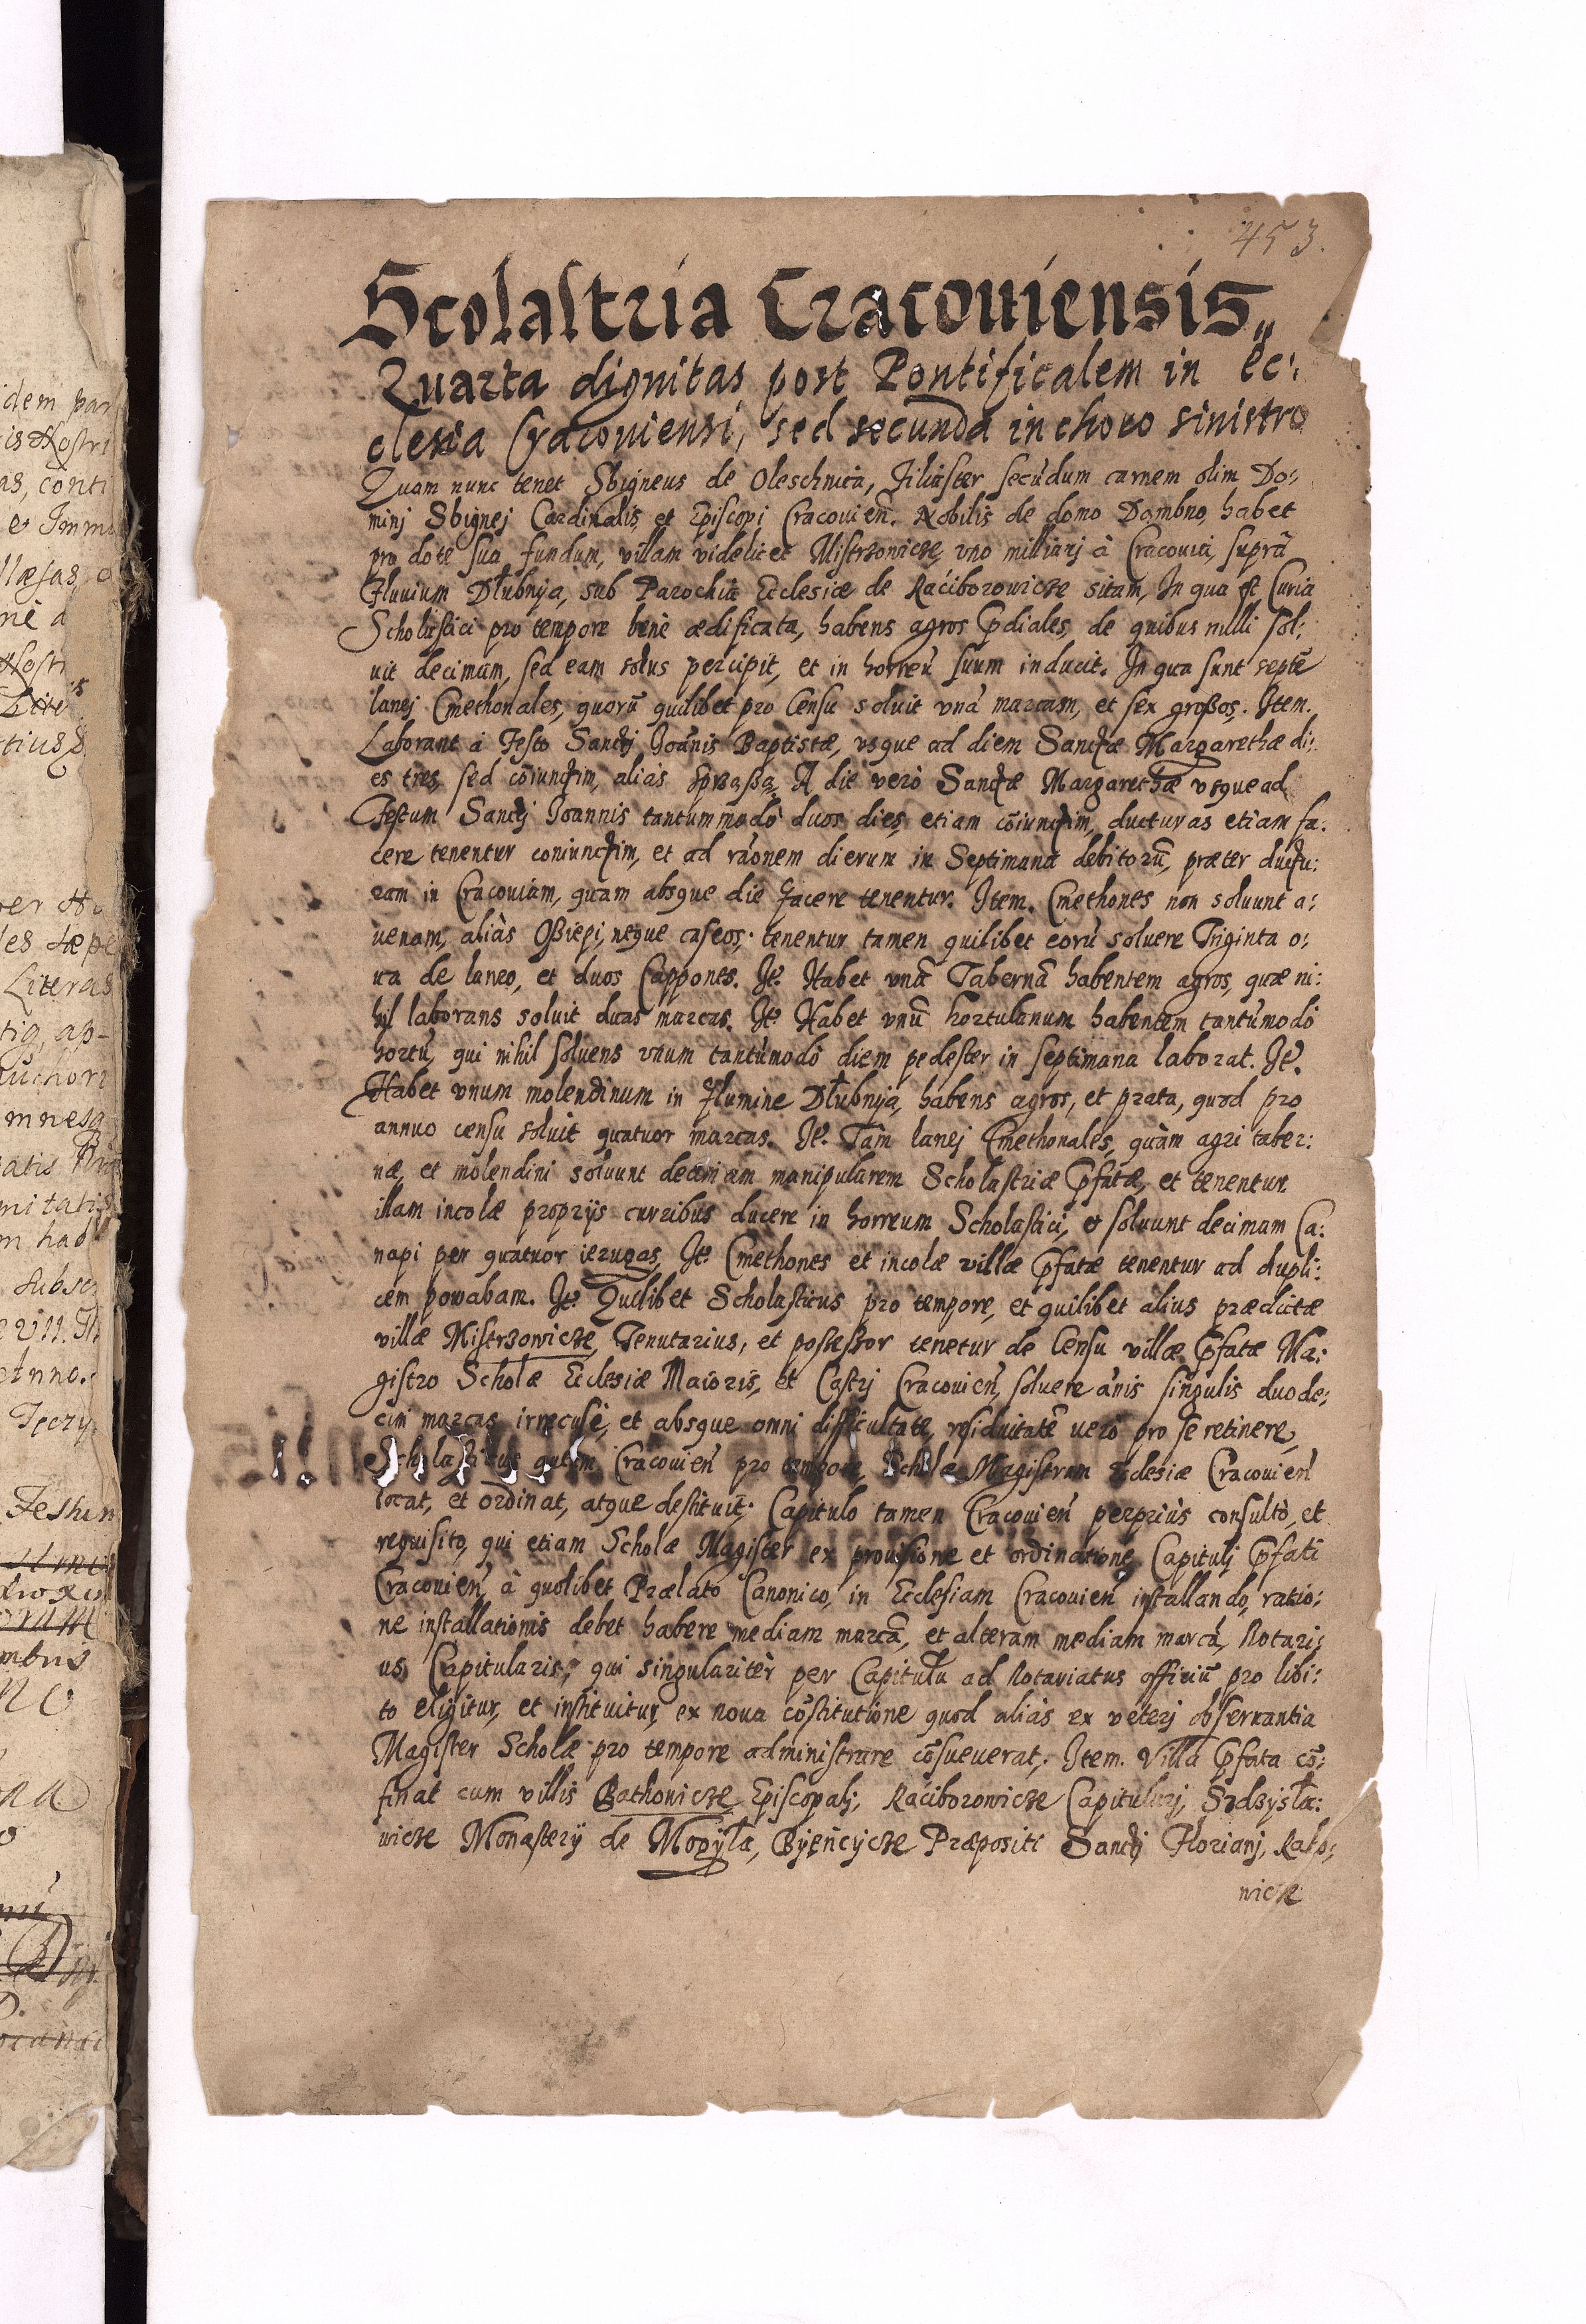 453.
Scolastria Cracouiensis„
Quarta dignitas post Pontificalem in Ec:
clesia Cracouiensi, sed secunda in choro sinistro
Quam nunc tenet Sbigneus de Oleschnica, Filiaster secūdum carnem olim Do:
minj Sbignej Cardinalis, et Episcopi Cracouien̄. Nobilis de domo Dambno, habet
pro dote sua fundum, villam videlicet Mistrzowicze, vno milliarj à Cracouia, supra
Fluuium Dłubnya, sub Parochia Ecclesiæ de Raciborowicze sitam, In qua est Curia
Scholastici pro tempore benè ædificata, habens agros p̄diales, de quibus nulli sol:
uit decimam, sed eam solus percipit, et in horreū suum inducit. In qua sunt septē
lanej Cmethonales, quorū quilibet pro Censu soluit vnā marcam, et sex großos. Item.
Laborant à Festo Sanctj Joānis Baptistæ, vsque ad diem Sanctæ Margarethæ di:
es tres, sed cōiunctim, aliàs sprzaßą. A die verò Sanctæ Margarethæ vsque ad
Festum Sanctj Joannis tantummodò duos dies, etiam cōiunctim, ducturas etiam fa:
cere tenentur coniunctim, et ad rāonem dierum in Septimana debitorū, præter ductu:
ram in Cracouiam, quam absque die facere tenentur. Item. Cmethones non soluunt a:
uenam, aliàs Oßiepi, neque caseos, tenentur tamen quilibet eorū soluere Triginta o:
ua de laneo, et duos Cappones. It. Habet vnā Tabernā habentem agros, quæ ni:
hil laborans soluit duas marcas. It. Habet vnū hortulanum habentem tantūmodò
hortū, qui nihil soluens vnum tantūmodò diem pedester in septimana laborat. It.
Habet vnum molendinum in flumine Dłubnya, habens agros, et prata, quod pro
annuo censu soluit quatuor marcas. It. Tàm lanej Cmethonales, quàm agri taber:
næ, et molendini soluunt decimam manipularem Scholastriæ p̄fatæ, et tenentur
illam incolæ proprijs curribus ducere in horreum Scholastici, et soluunt decimam Ca:
napi per quatuor ierugas. It. Cmethones et incolæ villæ p̄fatæ tenentur ad dupli:
cem powabam. It. Quilibet Scholasticus pro tempore, et quilibet alius prædictæ
villæ Mistrzowicze, Tenutarius, et poseßor tenetur de Censu villæ p̄fatæ Ma:
gistro Scholæ Ecclesiæ Maioris, et Castrj Cracouien̄, soluere ānis singulis duode:
cim marcas irrecusè, et absque omni difficultate, residuitatē verò pro se retinere,
Scholasticus autem Cracouien̄ pro tempore, Scholæ Magistrum Ecclesiæ Cracouien̄
locat, et ordinat, atque destituit; Capitulo tamen Cracouien̄ perprius consultò, et
requisito, qui etiam Scholæ Magister ex prouisione et ordinatione Capitulj p̄fati
Cracouien̄, à quolibet Prælato Canonico, in Ecclesiam Cracouien̄ installando, ratio:
ne installationis debet habere mediam marcā, et alteram mediam marcā, Notari:
us Capitularis, qui singularitèr per Capitulū ad Notariatus officiū pro libi:
to eligitur, et instituitur, ex noua cōstitutione quod aliàs ex veterj obseruantia
Magister Scholæ pro tempore administrare cōsueuerat. Item. Villa p̄fata cō:
finat cum villis Bathowicze Episcopalj, Raciborowicze Capitularj, Srdzysła:
wicze Monasterij de Mogyła, Byeńcycze Præpositi Sanctj Florianj, Rako:
wicze